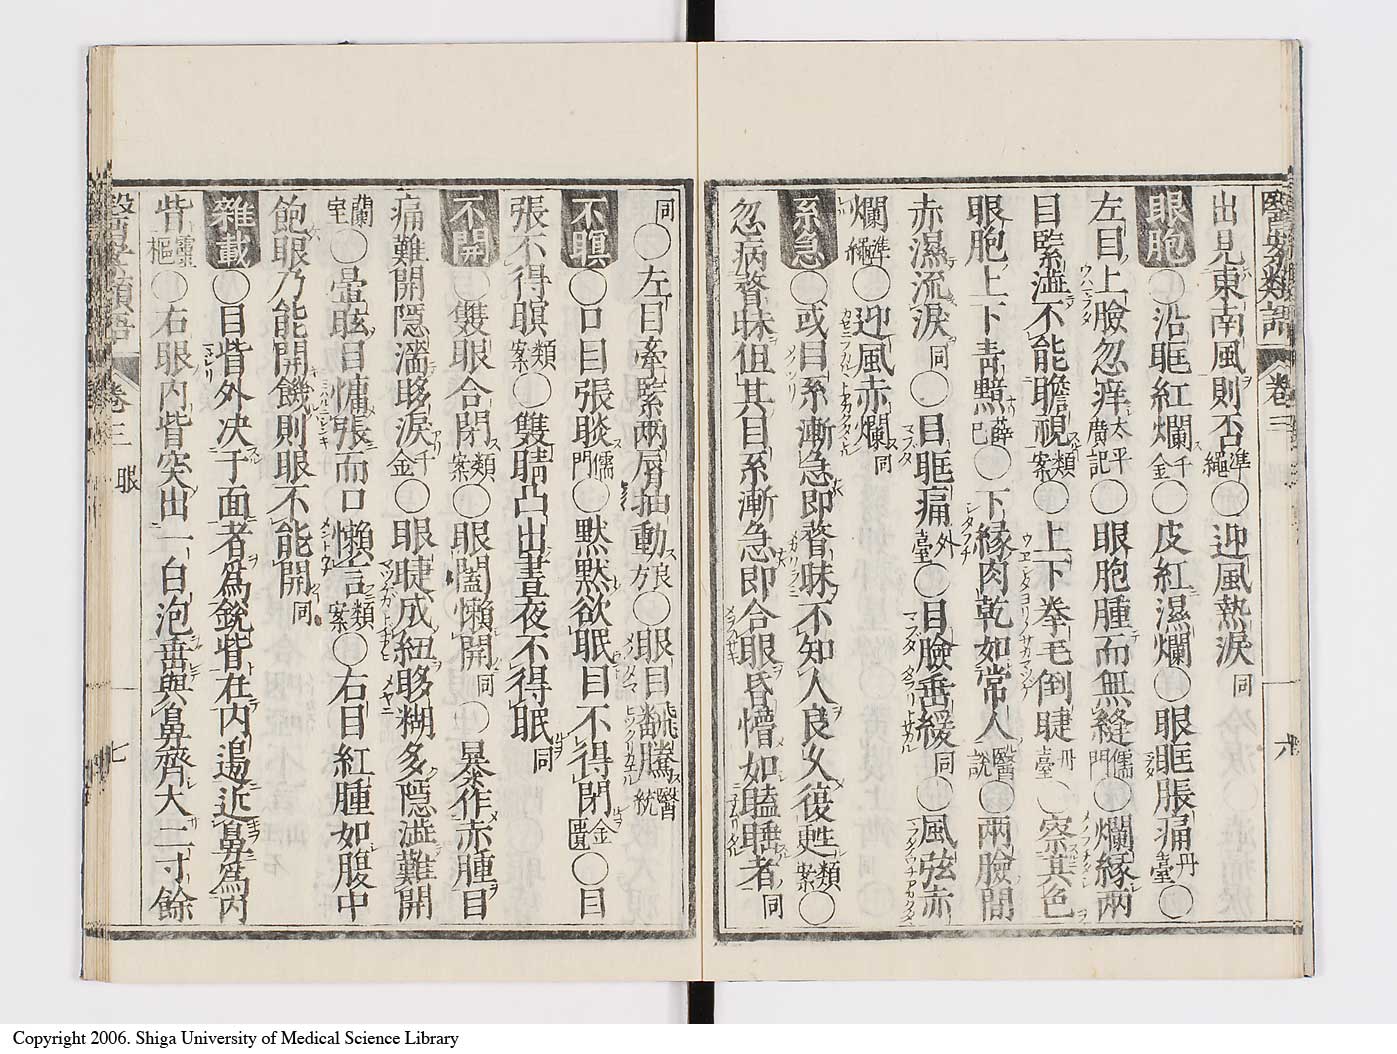 出見東南風則否準繩〇迎風熱淚同
眼胞〇沿眶紅爛千金〇皮紅濕爛〇眼眶脹痛丹臺〇
左目上臉忽痒太平廣記〇眼胞腫而無縫儒門〇爛緣兩
目緊澁不能瞻視類案〇上下拳毛倒睫丹臺〇察其色
眼胞上下青黯薛己〇下緣肉乾如常人醫說〇兩臉間
赤濕流淚同〇目眶痛外臺〇目臉垂緩同〇風弦赤
爛準繩〇迎風赤爛同
系急〇或目系漸急即瞀昧不知人良久復甦類案〇
忽病瞀昧但其目系漸急即合眼昏懵如瞌睡者同
同〇左目牽緊兩唇抽動良方〇眼目飜騰醫統
不瞑〇口目張睒儒門〇默默欲眠目不得閉金匱〇目
張不得瞑類案〇雙睛凸出晝夜不得眠同
不開〇雙眼合閉類案〇眼闔懶開同〇暴作赤腫目
痛難開隱濇眵淚千金〇眼睫成紐眵糊多隱澁難開
蘭室〇暈眩目慵張而口懶言類案〇右目紅腫如腹中
飽眼乃能開饑則眼不能開同
雜載〇目眥外决于面者爲銳眥在内邊近鼻爲内
眥靈樞〇右眼内眥突出一白泡垂與鼻齊大二寸餘
醫學類語 卷三 六
醫學類語 卷三 眼 七
Copyright 2006. Shiga University of Medical Science Library